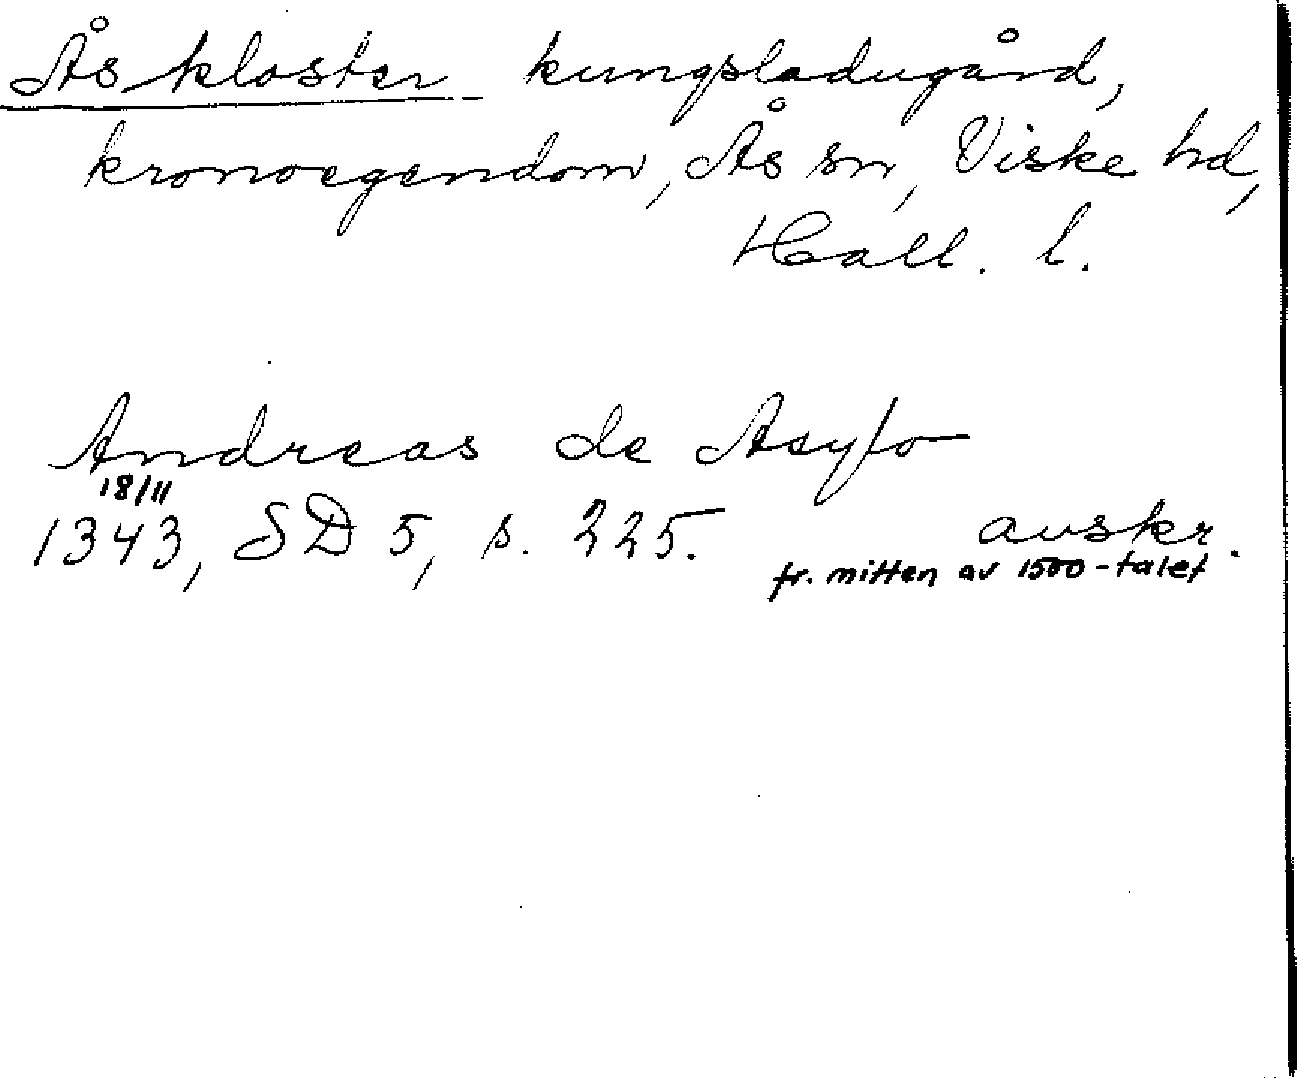 Ås kloster kungsladugård,
kronoegendom, Ås sn, Viske hd,
Hall. l.
Andreas de Asylo
18/11
1343, SD 5, s. 225. avskr.
fr. mitten av 1500-talet